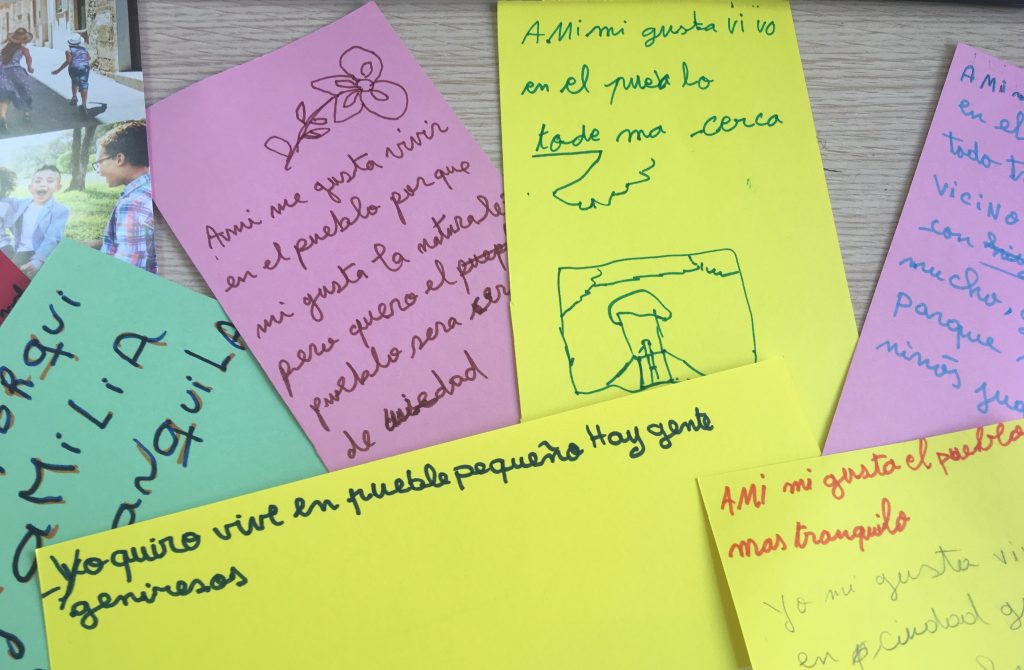 AMi mi gusta vivo
en el pueblo
tode ma cerca
Ami me gusta vivir
en el pueblo porque
mi gusta la naturale
pero quero el
pueblo sera cer
de
AMi
en el
todo t
viciNo
con
mucho,
parque
niños jua
RQUi
aMiLiA
anQuiLA
Yo quiro vive en pueble pequeño Hay gente
geniresos
AMi mi gusta el pueblo
mas tranquilo
Yo mi gusta vi
en ciudad